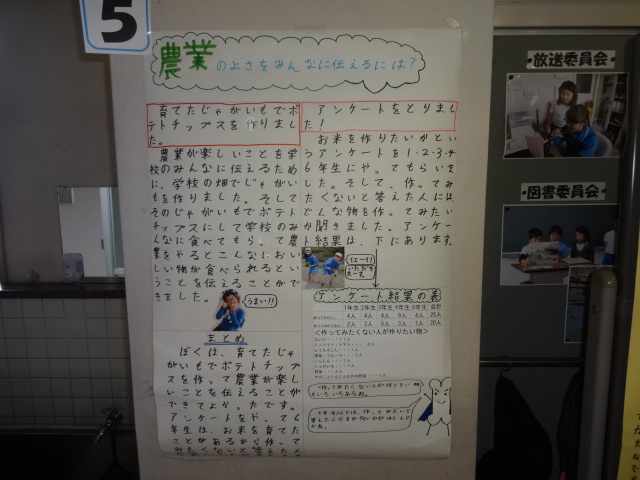 5
農業のよさをみんなに伝えるには？
育てたじゃがいもでポ
テトチップスを作りまし
た。
農業が楽しいことを学
校のみんなに伝えるため
に、学校の畑でじゃがい
もを作りました。そして
そのじゃがいもでポテト
チップスにして学校のみ
んなに食べてもらって農
業をやるとこんなにおい
しい物が食べられるとい
うことを伝えることがで
きました。
うまい!!
まとめ
ぼくは、育てたじゃ
がいもでポテトチップ
スを作って農業が楽し
いことを伝えることが
できてよかったです。
アンケートをやって6
年生は、お米を育てた
ことがあるから作って
アンケートをとりまし
た！
お米を作りたいかとい
うアンケートを1・2・3・4
6年生にやってもらいま
した。そして、作ってみ
たくないと答えた人には
どんな物を作ってみたい
か聞きました。アンケー
ト結果は、下にあります。
アンケート結果の表
1年生 2年生 3年生 4年生 6年生 合計
＜作ってみたくない人が作りたい物＞
放送委員会
図書委員会